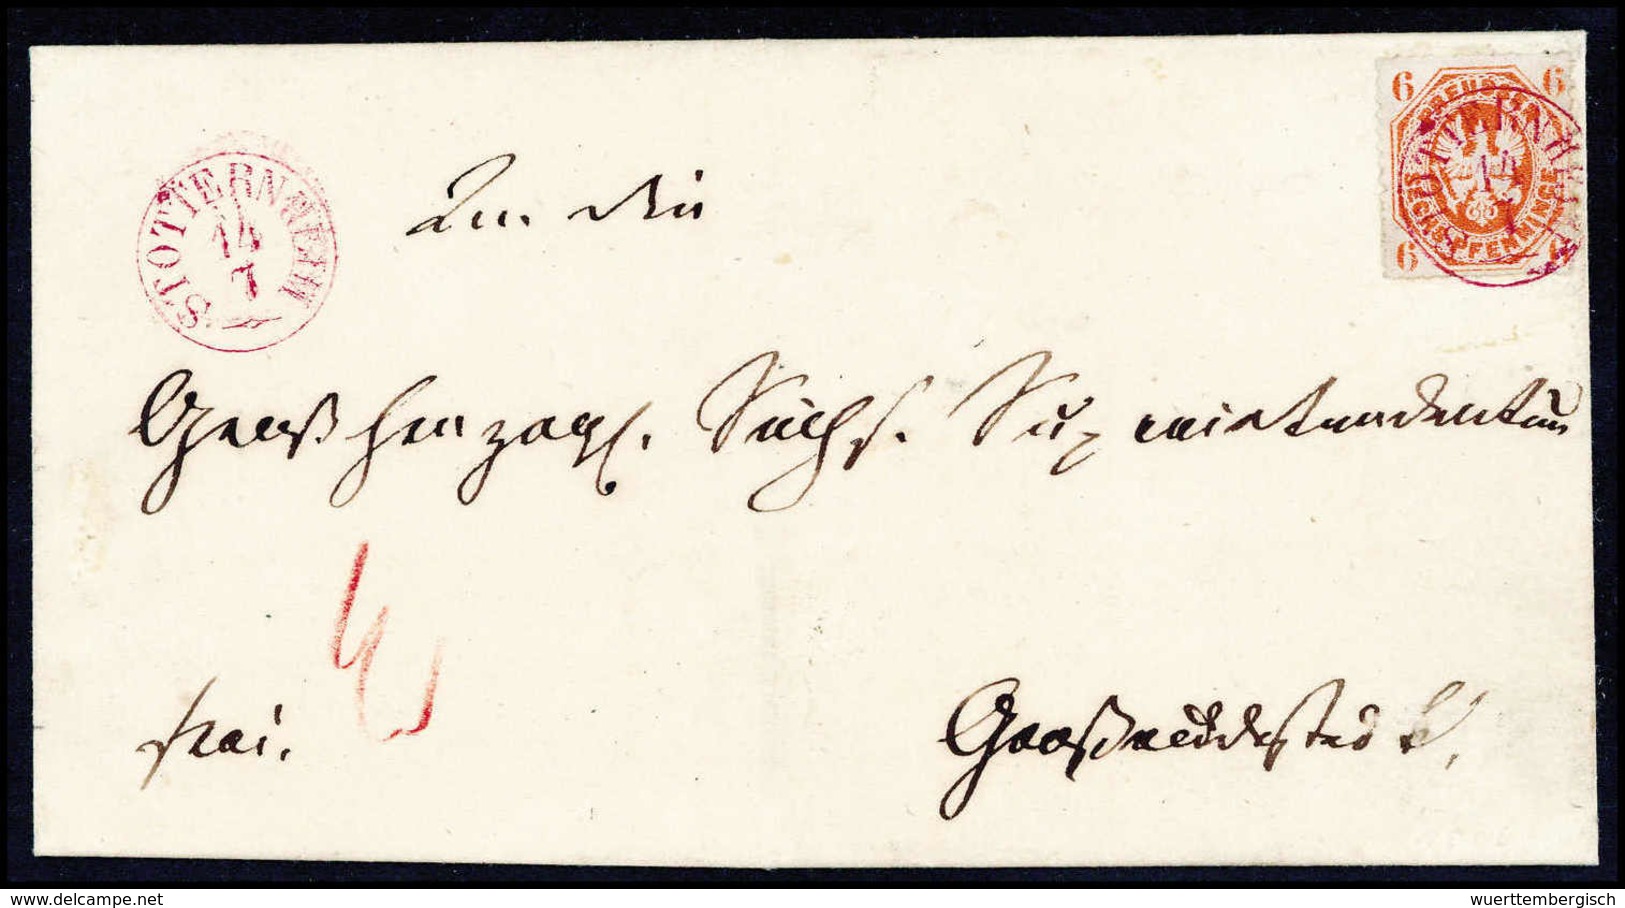 STOTTERNHEIM
14
7
6 6
PREUSSEN
SECHS PFENNINGE
6 6
STOTTERNHEIM
14
7
An die
Großherzogl. Sächs. Superintendentur
frei.
Großrudestedt.
delcampe.net
wuerttembergisch